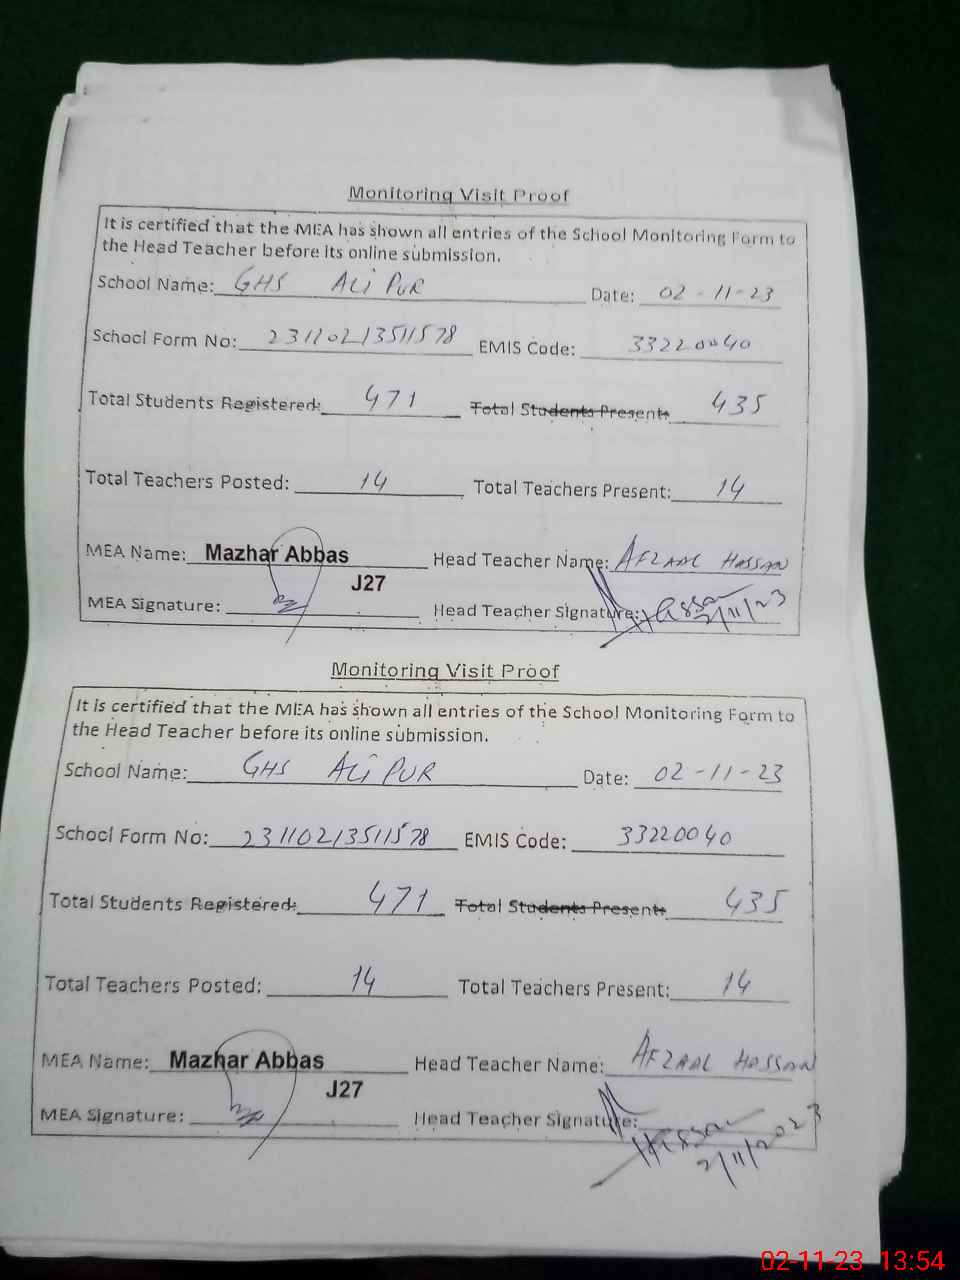 Monitoring Visit Proof
It is certified that the MEA has shown all entries of the School Monitoring Form to
the Head Teacher before its online submission.
School Name: GHS ALi PUR Date: 02-11-23
School Form No: 23110213511578 EMIS Code: 33220040
Total Students Registered: 471 Total Students Present: 435
Total Teachers Posted: 14 Total Teachers Present: 14
MEA Name: Mazhar Abbas Head Teacher Name: AFZAAL HASSAN
J27
MEA Signature: Head Teacher Signature: Hassan
2/11/23
Monitoring Visit Proof
It is certified that the MEA has shown all entries of the School Monitoring Form to
the Head Teacher before its online submission.
School Name: GHS ALi PUR Date: 02-11-23
School Form No: 23110213511578 EMIS Code: 33220040
Total Students Registered: 471 Total Students Present: 435
Total Teachers Posted: 14 Total Teachers Present: 14
MEA Name: Mazhar Abbas Head Teacher Name: AFZAAL HASSAN
J27
MEA Signature: Head Teacher Signature: Hassan
2/11/2023
02-11-23 13:54